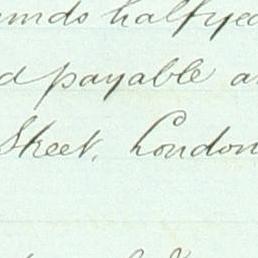 unds halfye
d payable a
Street, London